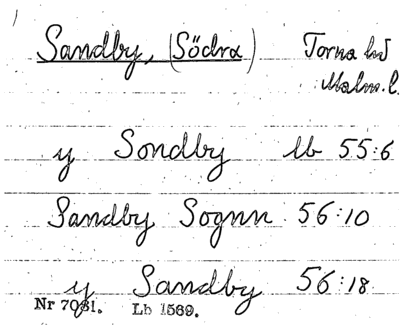 Sandby, (Södra) Torna hd
Malm. l.
y Sondby lb 55:6
Sandby Sognn 56:10
y Sandby 56:18
Nr 7031. Lb 1569.